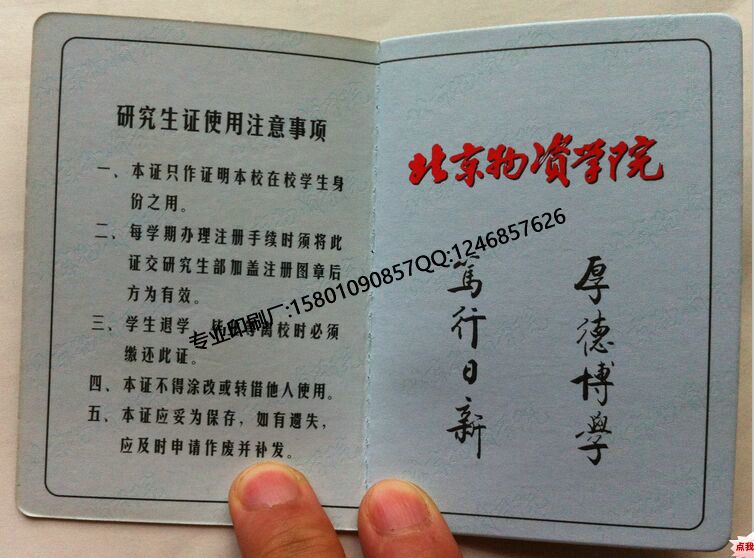 研究生证使用注意事项
一、本证只作证明本校在校学生身
份之用。
二、每学期办理注册手续时须将此
证交研究生部加盖注册图章后
方为有效。
三、学生退学、
离校时必须
缴还此证。
四、本证不得涂改或转借他人使用。
五、本证应妥为保存，如有遗失，
应及时申请作废并补发。
北京物资学院
厚德博學
篤行日新
专业印刷厂:15801090857QQ:1246857626
点我